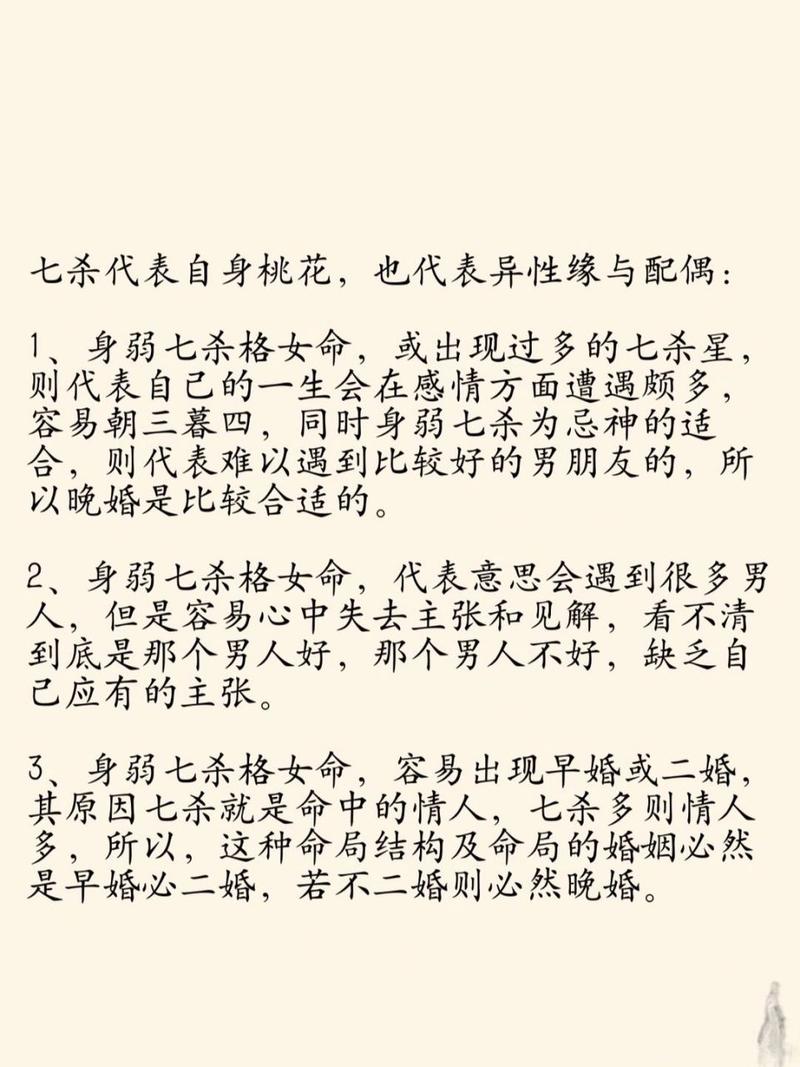 七杀代表自身桃花，也代表异性缘与配偶：
1、身弱七杀格女命，或出现过多的七杀星，
则代表自己的一生会在感情方面遭遇颇多，
容易朝三暮四，同时身弱七杀为忌神的适
合，则代表难以遇到比较好的男朋友的，所
以晚婚是比较合适的。
2、身弱七杀格女命，代表意思会遇到很多男
人，但是容易心中失去主张和见解，看不清
到底是那个男人好，那个男人不好，缺乏自
己应有的主张。
3、身弱七杀格女命，容易出现早婚或二婚，
其原因七杀就是命中的情人，七杀多则情人
多，所以，这种命局结构及命局的婚姻必然
是早婚必二婚，若不二婚则必然晚婚。